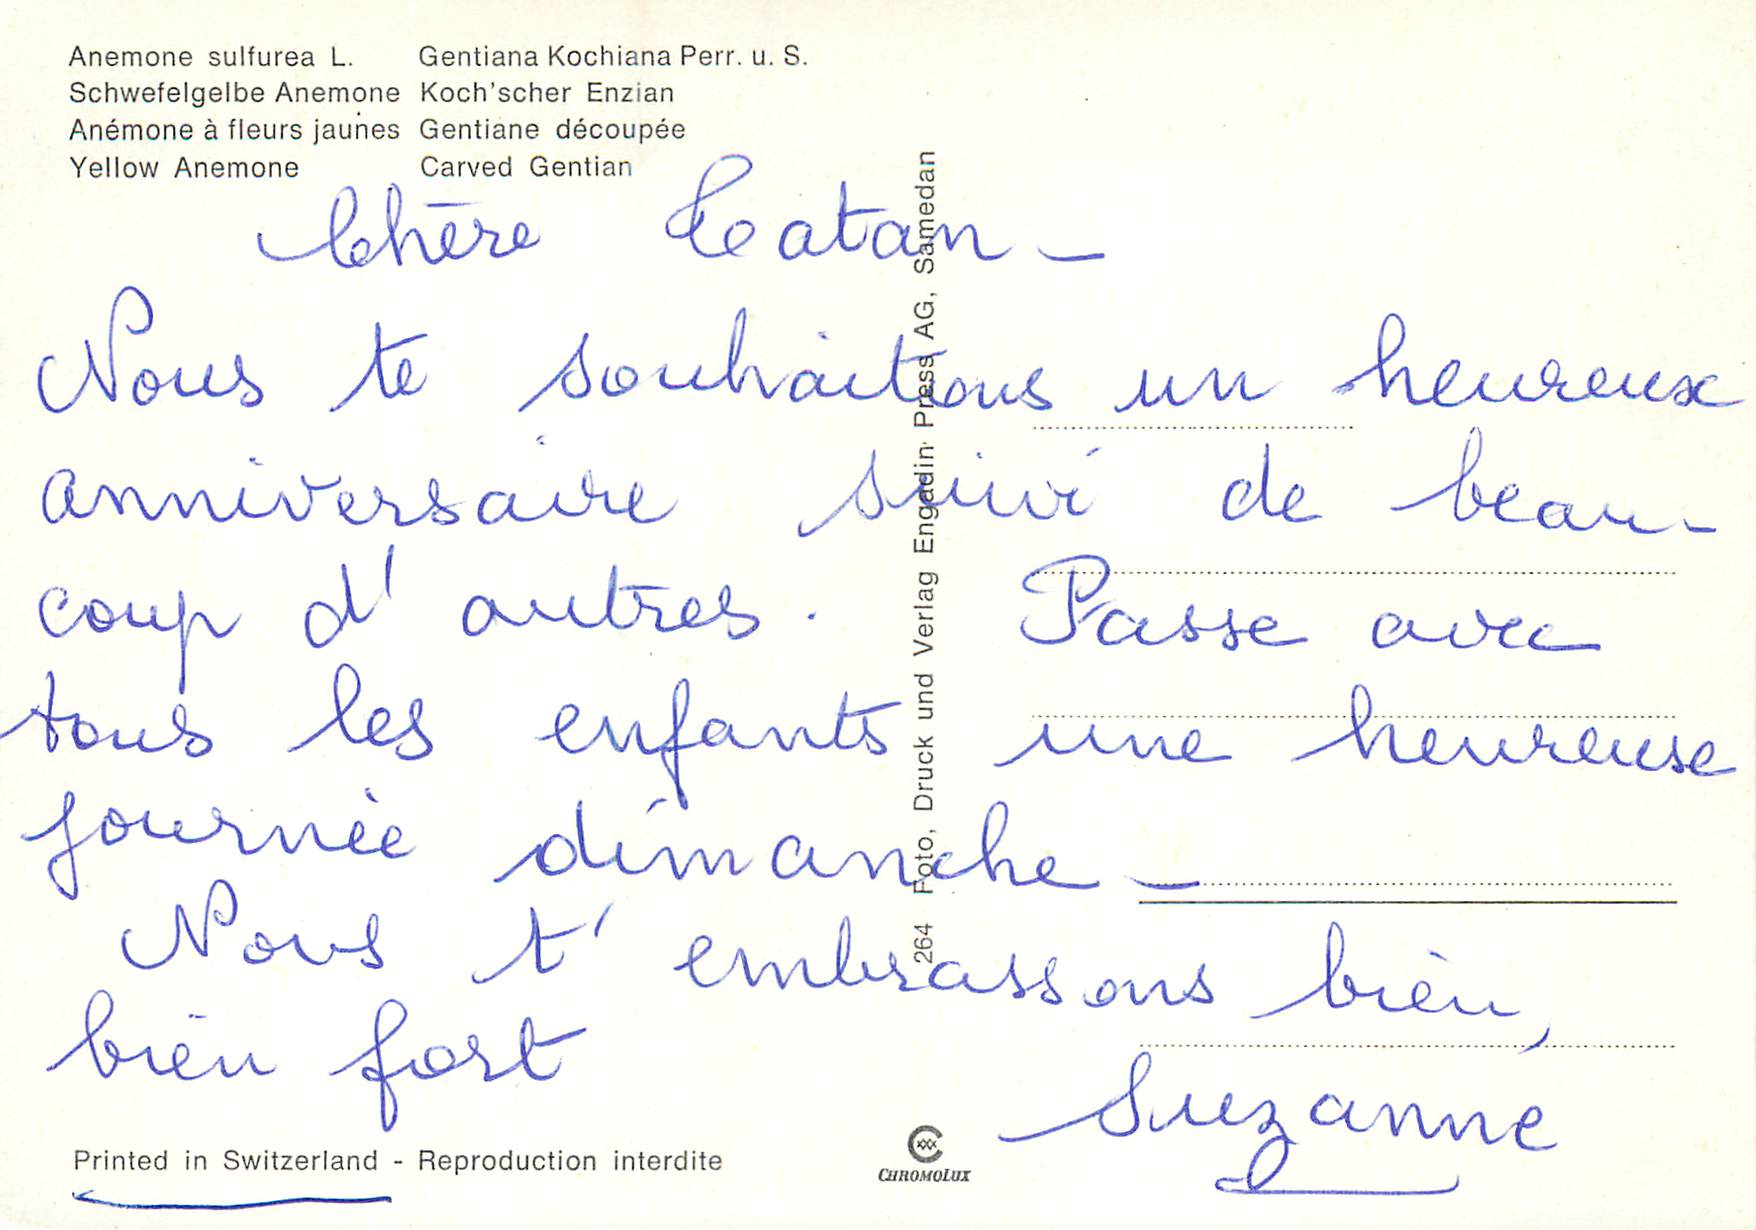 Anemone sulfurea L. Gentiana Kochiana Perr. u. S.
Schwefelgelbe Anemone Koch'scher Enzian
Anémone à fleurs jaunes Gentiane découpée
Yellow Anemone Carved Gentian
Chère Tatan -
Nous te souhaitons un heureux
anniversaire suivi de beau-
coup d'autres. Passe avec
tous les enfants une heureuse
journée dimanche -
Nous t'embrassons bien,
bien fort
Suzanne
264 Foto, Druck und Verlag Engadin Press AG, Samedan
Printed in Switzerland - Reproduction interdite
CHROMOLUX